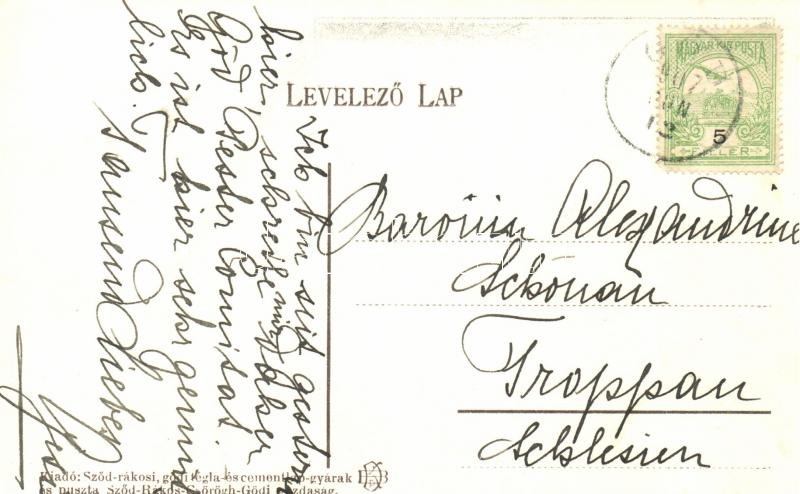 LEVELEZŐ LAP
MAGYAR KIR. POSTA
5
FILLÉR
Baronin Alexandrine
Schönau
Troppau
Schlesien
Ich bin seit gestern
hier, schreibe mir daher
Göd Pester Comitat
Es ist hier sehr gemüt
lich.
Tausend Lieben
Kiadó: Sződ-rákosi, gödi tégla- és cementlap-gyárak
és puszta Sződ-Rákos-Csörögh-Gödi gazdaság.